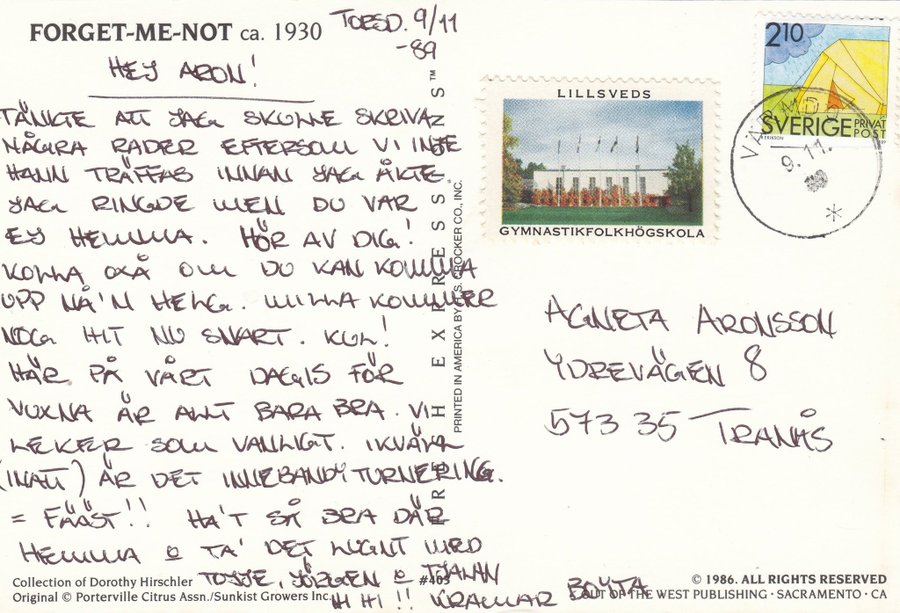 FORGET-ME-NOT ca. 1930
TORSD. 9/11
-89
HEJ ARON!
TÄNKTE ATT JAG SKULLE SKRIVA
NÅGRA RADER EFTERSOM VI INTE
HANN TRÄFFAS INNAN JAG ÅKTE
JAG RINGDE MEN DU VAR
EJ HEMMA. HÖR AV DIG!
KOLLA OXÅ OM DU KAN KOMMA
UPP NÅ'N HELG. MILLA KOMMER
NOG HIT NU SNART. KUL!
HÄR PÅ VÅRT DAGIS FÖR
VUXNA ÄR ALLT BARA BRA. VI
LEKER SOM VANLIGT. IKVÄLL
(INATT) ÄR DET INNEBANDYTURNERING.
= FÄÄST!! HA'T SÅ BRA DÄR
HEMMA o TA' DET LUGNT MED
JÖRGEN o TJAHAN
HI HI !! KRAMAR
Collection of Dorothy Hirschler
Original © Porterville Citrus Assn./Sunkist Growers Inc.
#403
EXPRESS™
PRINTED IN AMERICA BY H.S. CROCKER CO., INC.
LILLSVEDS
GYMNASTIKFOLKHÖGSKOLA
210
SVERIGE PRIVAT
POST
ERIKSON
9.11.
AGNETA ARONSSON
YDREVÄGEN 8
573 35 TRANÅS
© 1986. ALL RIGHTS RESERVED
OUT OF THE WEST PUBLISHING · SACRAMENTO · CA